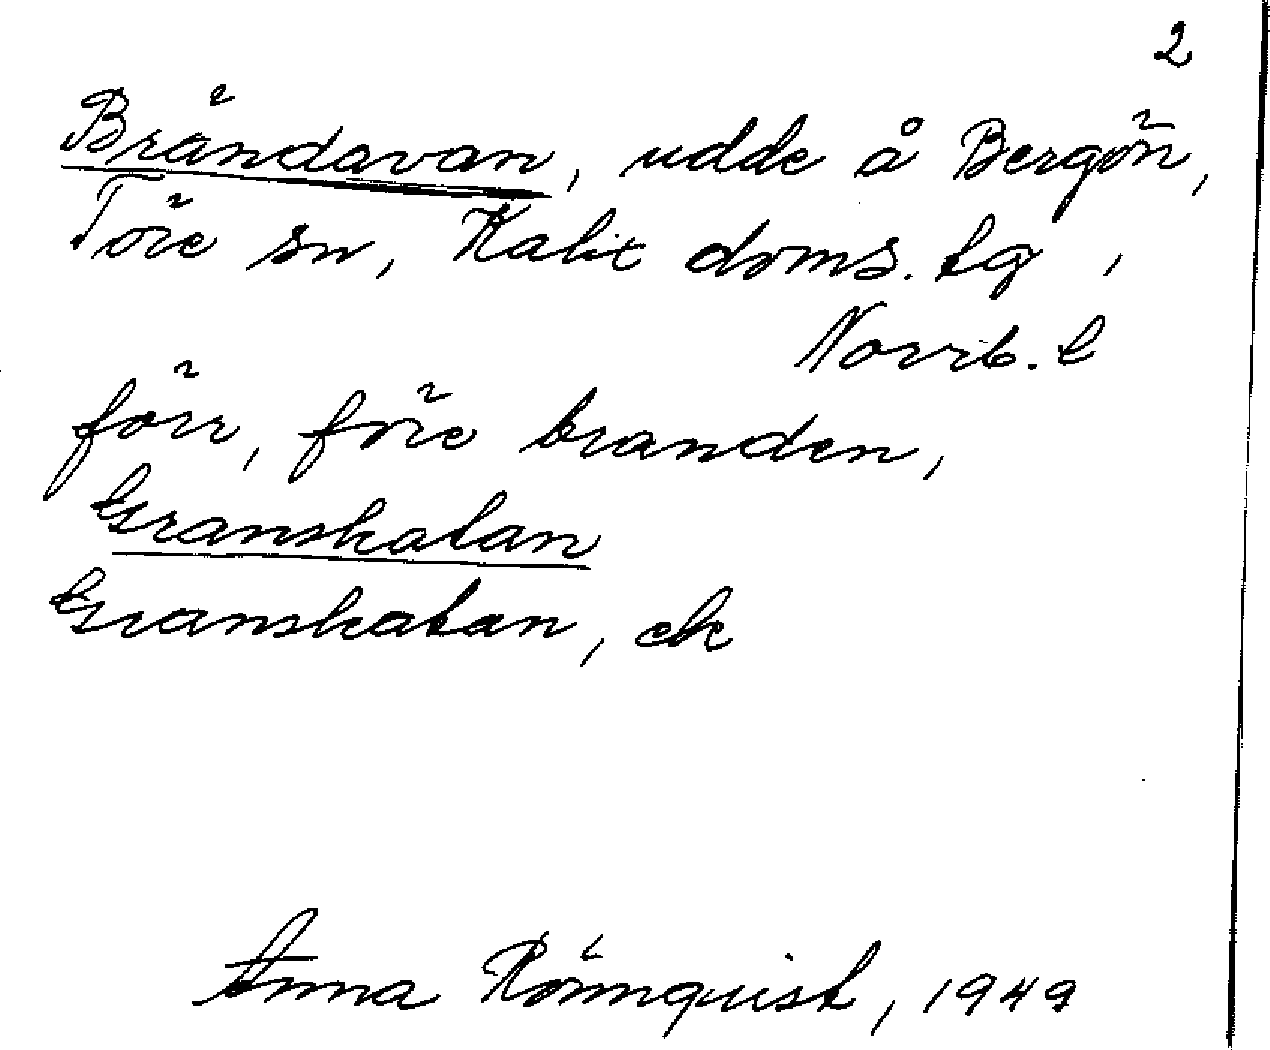 2
Brändavan, udde å Bergön,
Töre sn, Kalix doms. tg,
Norrb. l
förr, före branden,
Granskatan
Granskatan, ek
Anna Rönnquist, 1949